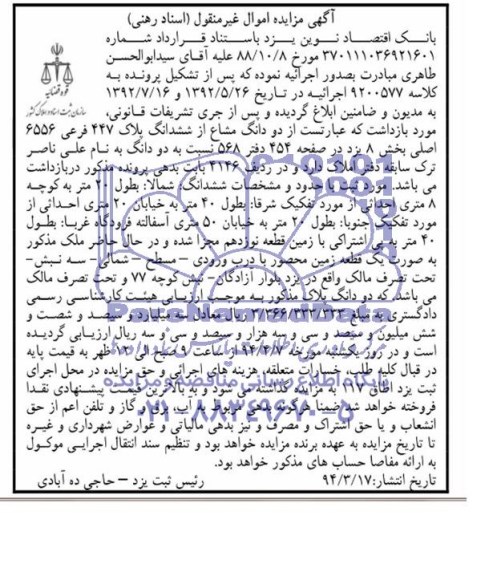 آگهی مزایده اموال غیرمنقول (اسناد رهنی)
بانک اقتصاد نوین یزد باستناد قرارداد شماره
۳۷۰۱۱۱۰۳۶۹۲۱۶۰۱ مورخ ۸۸/۱۰/۸ علیه آقای سیدابوالحسن
طاهری مبادرت بصدور اجرائیه نموده که پس از تشکیل پرونده به
کلاسه ۹۲۰۰۵۷۷ اجرائیه در تاریخ ۱۳۹۲/۵/۲۶ و ۱۳۹۲/۷/۱۶
به مدیون و ضامنین ابلاغ گردیده و پس از جری تشریفات قانونی،
مورد بازداشت که عبارتست از دو دانگ مشاع از ششدانگ پلاک ۴۴۷ فرعی ۶۵۵۶
اصلی بخش ۸ یزد در صفحه ۴۵۴ دفتر ۵۶۸ نسبت به دو دانگ به نام علی ناصر
ترک سابقه دفتر املاک دارد و در ردیف ۴۱۴۶ بابت بدهی پرونده مذکور دربازداشت
می باشد. مورد ثبت با حدود و مشخصات ششدانگ: شمالا: بطول ۲۰ متر به کوچه
۸ متری احداثی از مورد تفکیک شرقا: بطول ۴۰ متر به خیابان ۲۰ متری احداثی از
مورد تفکیک جنوبا: بطول ۲۰ متر به خیابان ۵۰ متری آسفالته فرودگاه غربا: بطول
۴۰ متر به پی اشتراکی با زمین قطعه نوزدهم مجزا شده و در حال حاضر ملک مذکور
به صورت یک قطعه زمین محصور با درب ورودی – مسطح – شمالی – سه نبش –
تحت تصرف مالک واقع در یزد بلوار آزادگان – نبش کوچه ۷۷ و تحت تصرف مالک
می باشد، که دو دانگ پلاک مذکور به موجب ارزیابی هیئت کارشناسی رسمی
دادگستری به مبلغ ۳/۳۶۶/۳۳۳/۳۳۳ ریال معادل سه میلیارد و سیصد و شصت و
شش میلیون و سیصد و سی و سه هزار و سیصد و سی و سه ریال ارزیابی گردیده
است و در روز یکشنبه مورخه ۹۴/۴/۷ از ساعت ۹ صبح الی ۱۲ ظهر به قیمت پایه
در قبال کلیه طلب، خسارات متعلقه، هزینه های اجرائی و حق مزایده در محل اجرای
ثبت یزد اطاق ۱۱۷ به مزایده گذاشته می شود و به بالاترین قیمت پیشنهادی نقدا
فروخته خواهد شد ضمنا هرگونه بدهی مربوط به آب، برق و گاز و تلفن اعم از حق
انشعاب و یا حق اشتراک و مصرف و نیز بدهی مالیاتی و عوارض شهرداری و غیره
تا تاریخ مزایده به عهده برنده مزایده خواهد بود و تنظیم سند انتقال اجرایی موکول
به ارائه مفاصا حساب های مذکور خواهد بود.
تاریخ انتشار: ۹۴/۳/۱۷ رئیس ثبت یزد – حاجی ده آبادی
قوه قضائیه
سازمان ثبت اسناد و املاک کشور
ParsNamadData
پایگاه اطلاع رسانی مناقصه و مزایده
۰۲۱-۸۸۳۴۹۶۷۰-۵